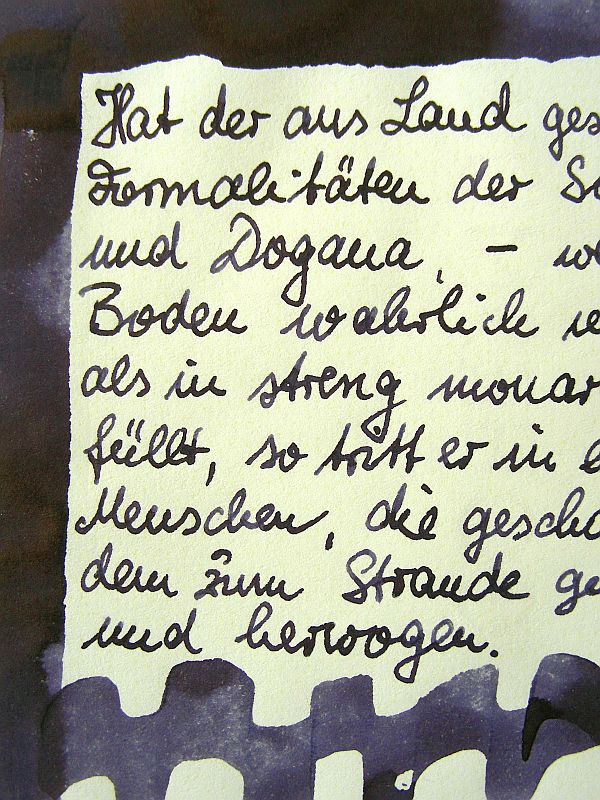 Hat der aus Land ges
Formalitäten der Sa
und Dogana, – we
Boden wahrlich w
als in streng monar
füllt, so tritt er in
Menschen, die gescha
dem zum Strande ge
und herwogen.